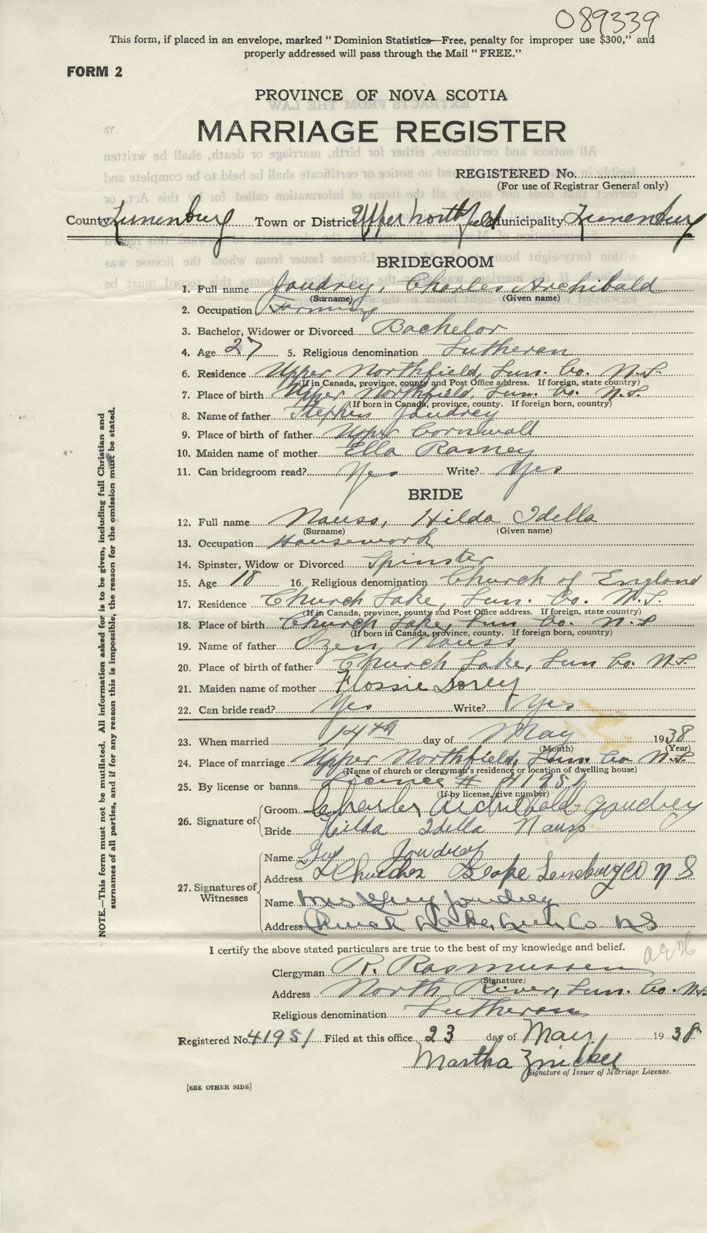 089339
This form, if placed in an envelope, marked "Dominion Statistics—Free, penalty for improper use $300," and
properly addressed will pass through the Mail "FREE."
FORM 2
PROVINCE OF NOVA SCOTIA
MARRIAGE REGISTER
REGISTERED No.
(For use of Registrar General only)
County Lunenburg Town or District Upper Northfield Municipality Lunenburg
BRIDEGROOM
1. Full name Joudrey, Charles Archibald
(Surname) (Given name)
2. Occupation Farming
3. Bachelor, Widower or Divorced Bachelor
4. Age 27 5. Religious denomination Lutheran
6. Residence Upper Northfield, Lun. Co. N.S.
(If in Canada, province, county and Post Office address. If foreign, state country)
7. Place of birth Upper Northfield, Lun. Co. N.S.
(If born in Canada, province, county. If foreign born, country)
8. Name of father Stephen Joudrey
9. Place of birth of father Upper Cornwall
10. Maiden name of mother Ella Ramey
11. Can bridegroom read? Yes Write? Yes
BRIDE
12. Full name Nauss, Hilda Idella
(Surname) (Given name)
13. Occupation Housework
14. Spinster, Widow or Divorced Spinster
15. Age 18 16. Religious denomination Church of England
17. Residence Church Lake, Lun. Co. N.S.
(If in Canada, province, county and Post Office address. If foreign, state country)
18. Place of birth Church Lake, Lun Co. N.S
(If born in Canada, province, county. If foreign born, country)
19. Name of father Ozen Nauss
20. Place of birth of father Church Lake, Lun Co. N.S.
21. Maiden name of mother Flossie Dorey
22. Can bride read? Yes Write? Yes
23. When married 14th day of May 1938
(Month) (Year)
24. Place of marriage Upper Northfield, Lun. Co N.S.
(Name of church or clergyman's residence or location of dwelling house)
25. By license or banns Licence # 41951
(If by license, give number)
26. Signature of Groom Charles Archibald Joudrey
Bride Hilda Idella Nauss
27. Signatures of Witnesses
Name Guy Joudrey
Address Lunenburg Co N S
Name Mrs Guy Joudrey
Address Church Lake, Lun. Co N S
I certify the above stated particulars are true to the best of my knowledge and belief.
Clergyman R. Rasmussen
(Signature)
Address North River, Lun. Co. N.S.
Religious denomination Lutheran
Registered No. 41951 Filed at this office 23 day of May, 1938
Martha Zwicker
Signature of Issuer of Marriage License
[SEE OTHER SIDE]
NOTE.—This form must not be mutilated. All information asked for is to be given, including full Christian and
surnames of all parties, and if for any reason this is impossible, the reason for the omission must be stated.